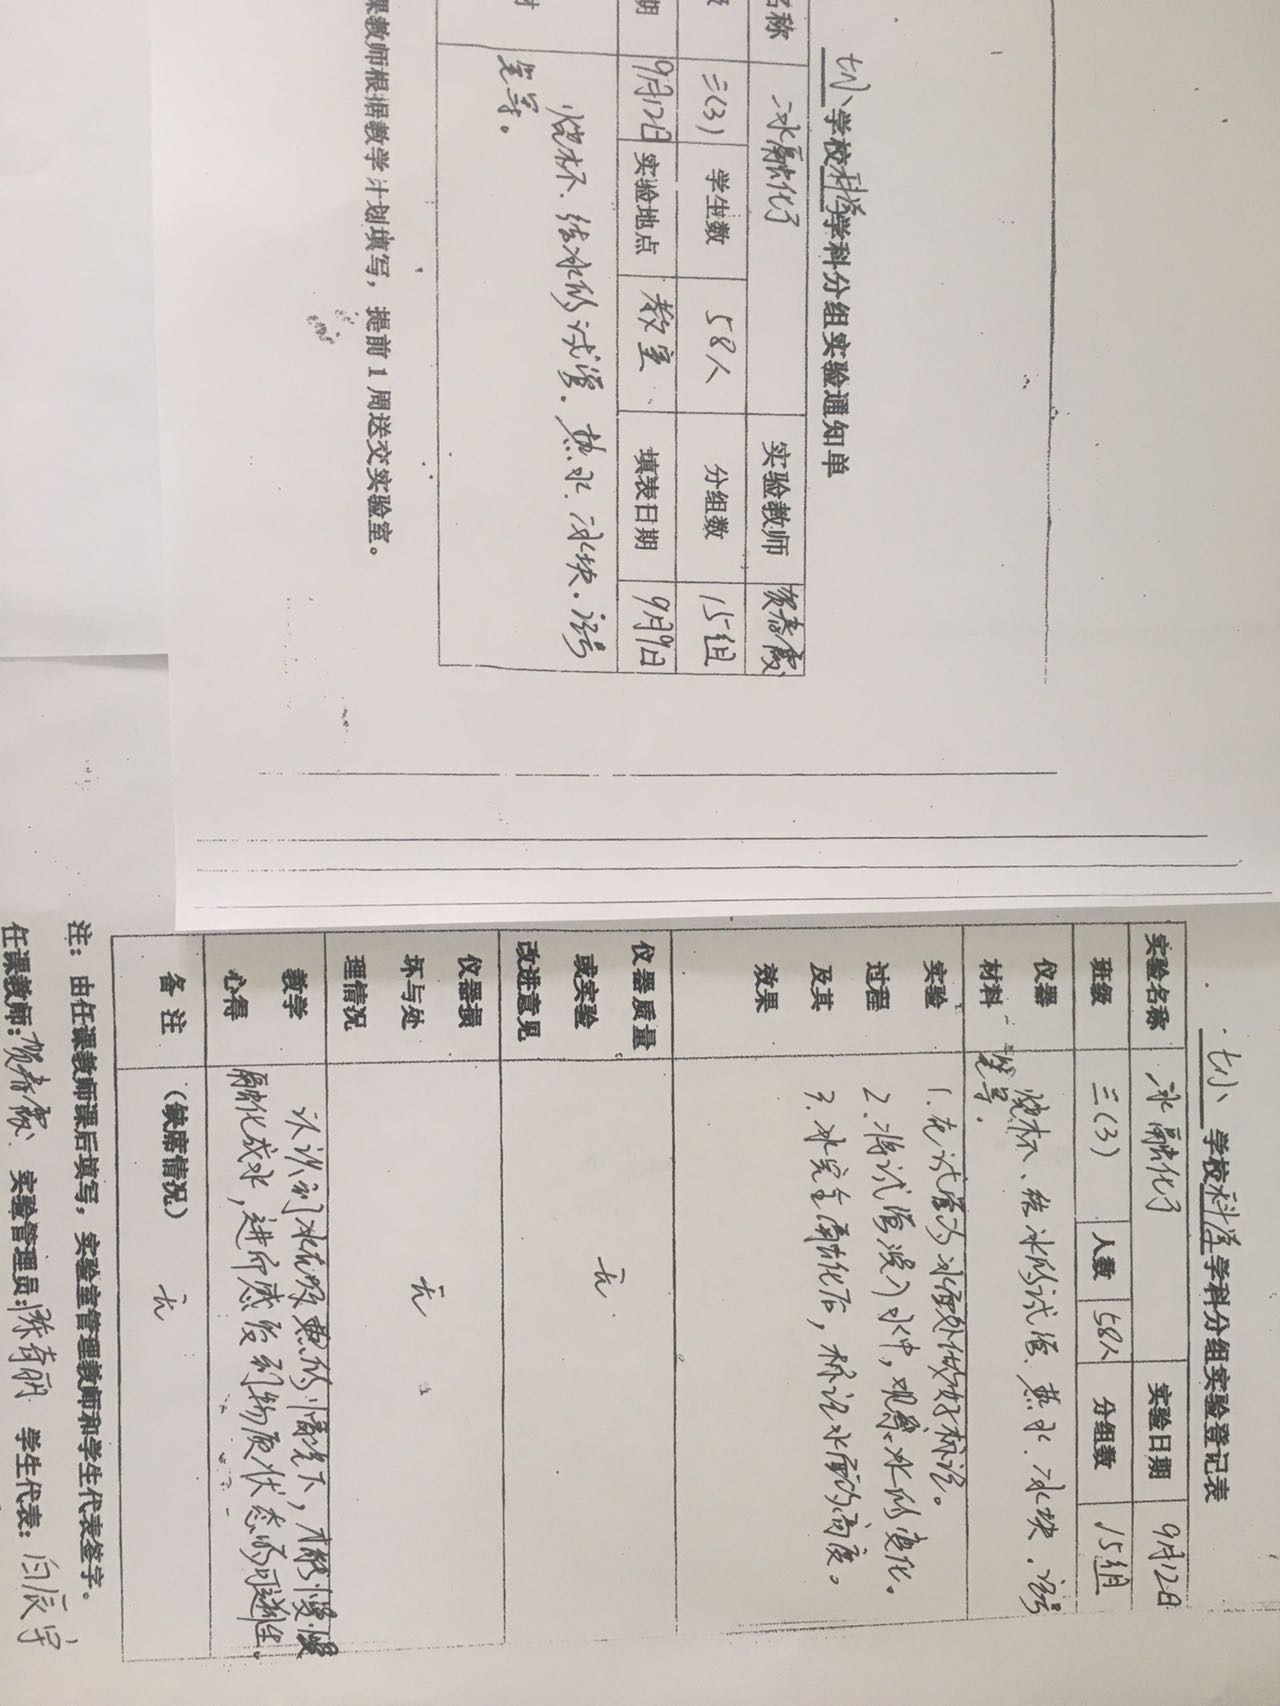 七小学校科学学科分组实验通知单
名称 冰融化了 实验教师 贺春霞
三(3) 学生数 58人 分组数 15组
期 9月12日 实验地点 教室 填表日期 9月9日
烧杯、结冰的试管、热水、冰块、记号
笔等。
课教师根据教学计划填写，提前1周送交实验室。
七小 学校科学学科分组实验登记表
实验名称 冰融化了 实验日期 9月12日
班级 三(3) 人数 58人 分组数 15组
仪器
材料
烧杯、结冰的试管、热水、冰块、记号
笔等.
实验
过程
及其
效果
1.在试管的冰面处做好标记。
2.将试管浸入水中，观察冰的变化。
3.冰完全融化后，标记水面的高度。
仪器质量
或实验
改进意见
无
仪器损
坏与处
理情况
无
教学
心得
认识到冰在吸热的情况下，才能慢慢
融化成水，进而感受到物质状态的可逆性.
备注 (缺席情况) 无
注：由任课教师课后填写，实验室管理教师和学生代表签字。
任课教师:贺春霞 实验管理员:陈奇丽 学生代表：白辰宇